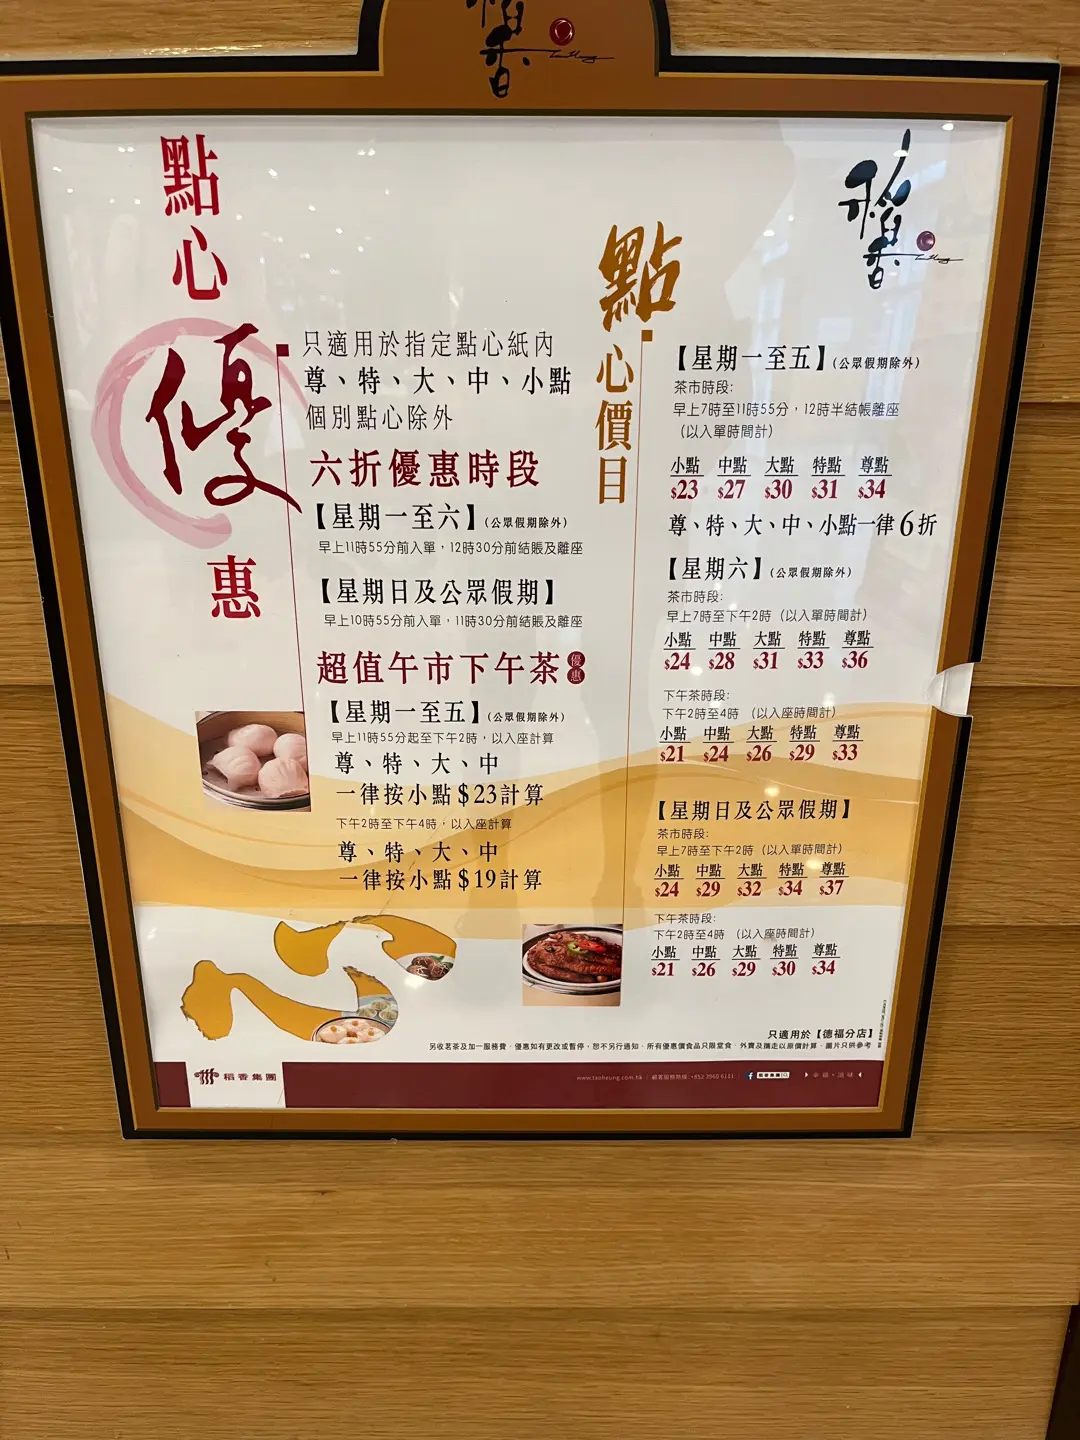 稻香
點心優惠
只適用於指定點心紙內
尊、特、大、中、小點
個別點心除外
六折優惠時段
【星期一至六】(公眾假期除外)
早上11時55分前入單，12時30分前結賬及離座
【星期日及公眾假期】
早上10時55分前入單，11時30分前結賬及離座
超值午市下午茶優惠
【星期一至五】(公眾假期除外)
早上11時55分起至下午2時，以入座計算
尊、特、大、中
一律按小點$23計算
下午2時至下午4時，以入座計算
尊、特、大、中
一律按小點$19計算
稻香
點心價目
【星期一至五】(公眾假期除外)
茶市時段:
早上7時至11時55分，12時半結帳離座
（以入單時間計）
小點 中點 大點 特點 尊點
$23 $27 $30 $31 $34
尊、特、大、中、小點一律6折
【星期六】(公眾假期除外)
茶市時段:
早上7時至下午2時（以入單時間計）
小點 中點 大點 特點 尊點
$24 $28 $31 $33 $36
下午茶時段:
下午2時至4時 （以入座時間計）
小點 中點 大點 特點 尊點
$21 $24 $26 $29 $33
【星期日及公眾假期】
茶市時段:
早上7時至下午2時（以入單時間計）
小點 中點 大點 特點 尊點
$24 $29 $32 $34 $37
下午茶時段:
下午2時至4時 （以入座時間計）
小點 中點 大點 特點 尊點
$21 $26 $29 $30 $34
只適用於【德福分店】
另收茗茶及加一服務費．優惠如有更改或暫停，恕不另行通知．所有優惠價食品只限堂食．外賣及攜走以原價計算．圖片只供參考
稻香集團
www.taoheung.com.hk | 顧客服務熱線:+852 3960 6111